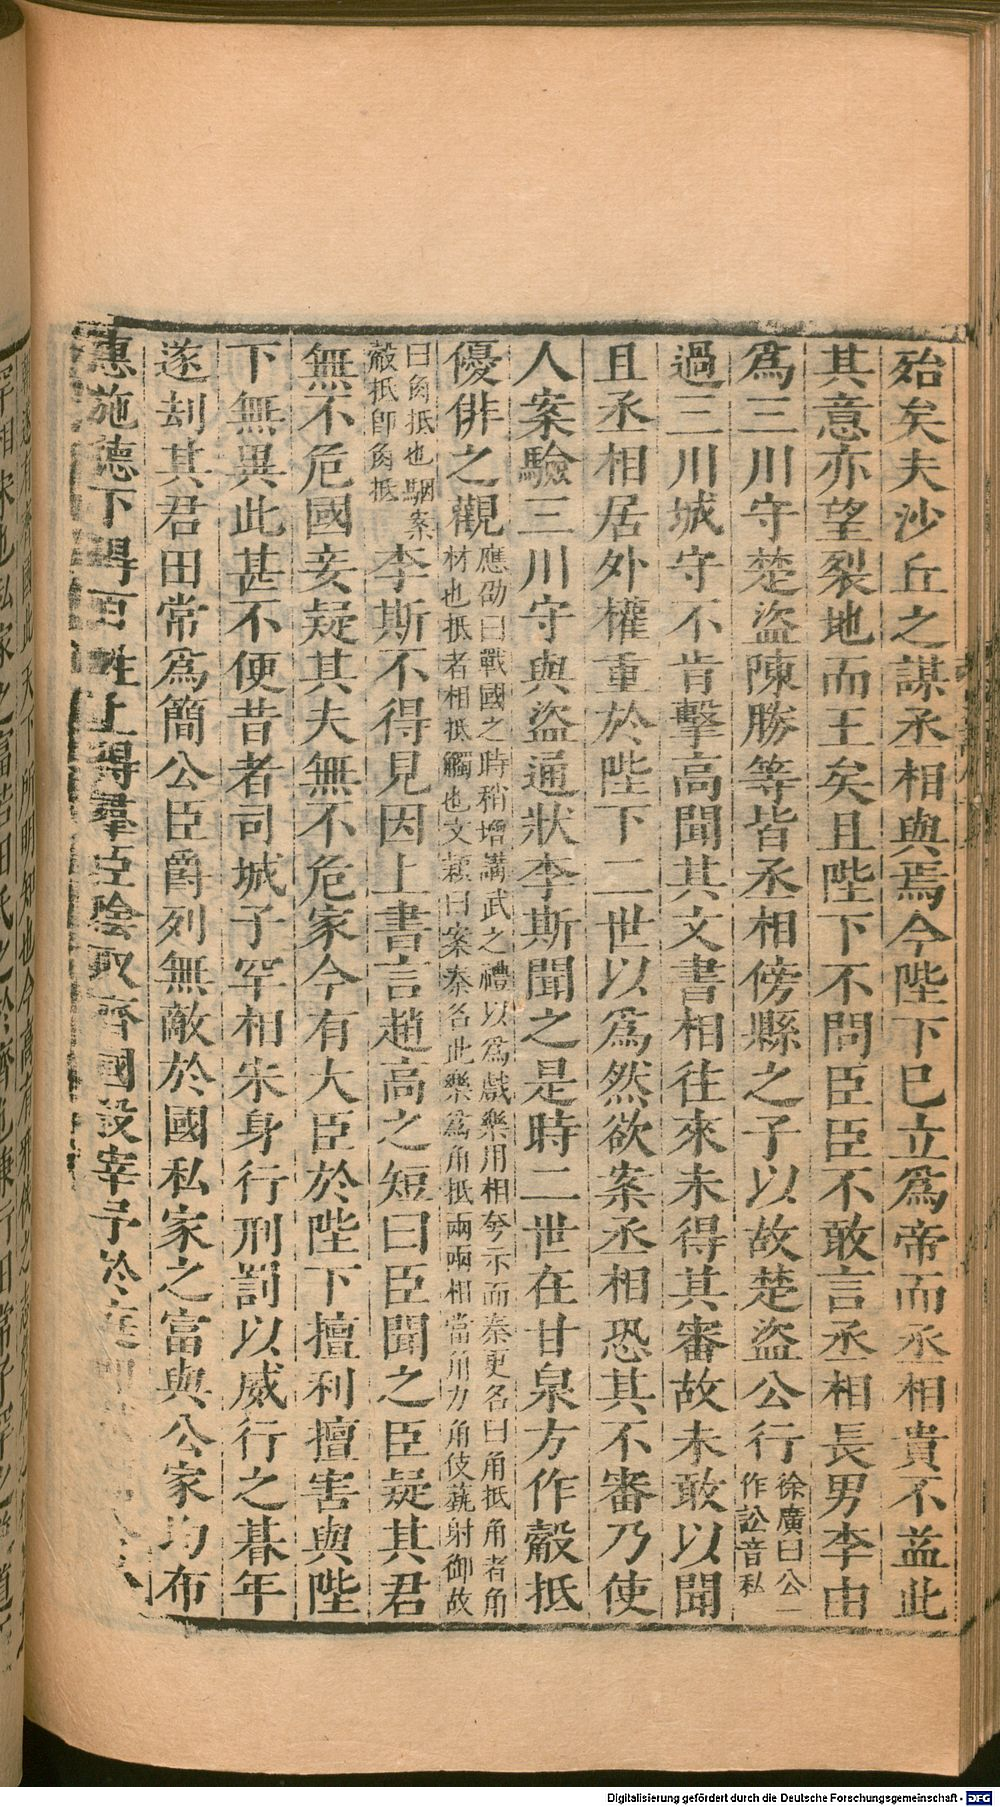 殆矣夫沙丘之謀丞相與焉今陛下已立爲帝而丞相貴不益此
其意亦望裂地而王矣且陛下不問臣臣不敢言丞相長男李由
爲三川守楚盜陳勝等皆丞相傍縣之子以故楚盜公行徐廣曰公一作訟音私
過三川城守不肯擊高聞其文書相往來未得其審故未敢以聞
且丞相居外權重於陛下二世以爲然欲案丞相恐其不審乃使
人案驗三川守與盜通狀李斯聞之是時二世在甘泉方作觳抵
優俳之觀應劭曰戰國之時稍增講武之禮以爲戲樂用相夸示而秦更名曰角抵角者角材也抵者相抵觸也文穎曰案秦名此樂爲角抵兩兩相當角力角伎蓺射御故
曰角抵也駰案觳抵即角抵李斯不得見因上書言趙高之短曰臣聞之臣疑其君
無不危國妾疑其夫無不危家今有大臣於陛下擅利擅害與陛
下無異此甚不便昔者司城子罕相宋身行刑罰以威行之朞年
遂刦其君田常爲簡公臣爵列無敵於國私家之富與公家均布
惠施德下得百姓上得羣臣陰取齊國殺宰予於庭
Digitalisierung gefördert durch die Deutsche Forschungsgemeinschaft - DFG